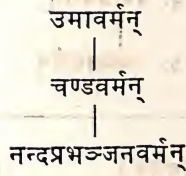 उमावर्मन्
चण्डवर्मन्
नन्दप्रभञ्जनवर्मन्